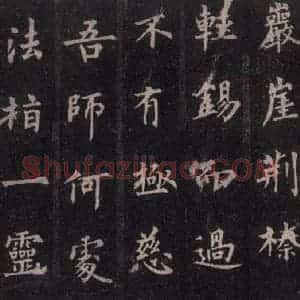 巖崖荆榛
軽錫而過
不有極慈
吾師何處
法相一靈
Shufazidao.com